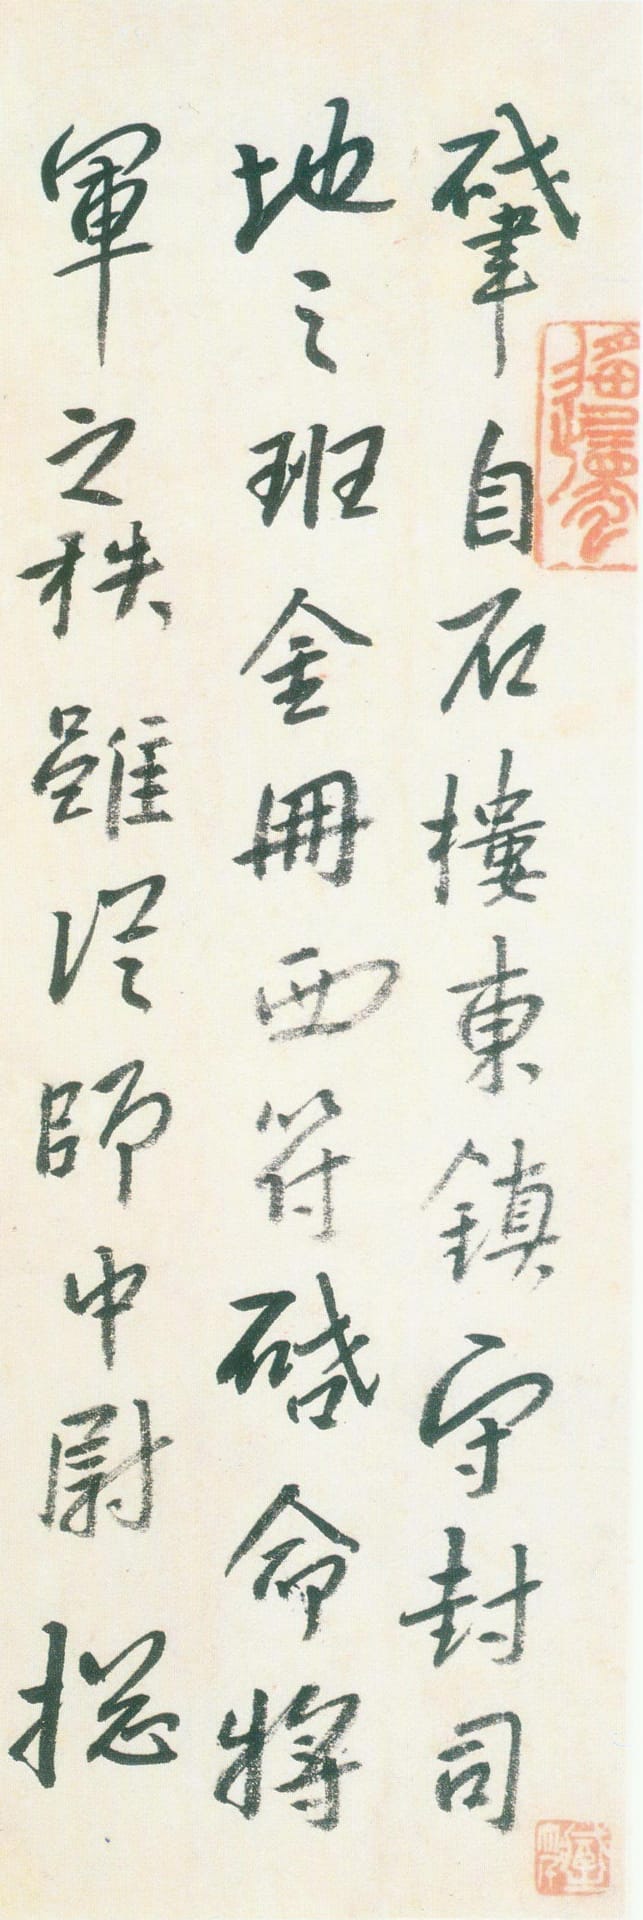 肇自石樓東鎮守封司
地之班金冊西符啓命將
軍之秩雖從師中尉捴